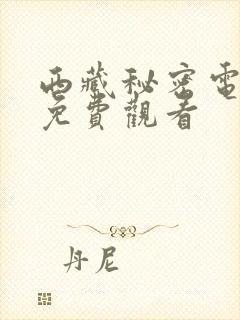 西藏秘密電
免費觀看
丹尼